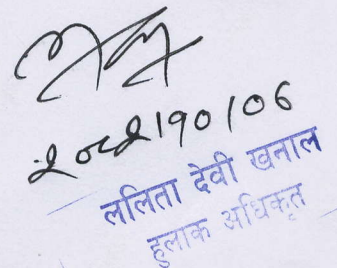 २०८२।१०।०६
ललिता देवी खनाल
हुलाक अधिकृत